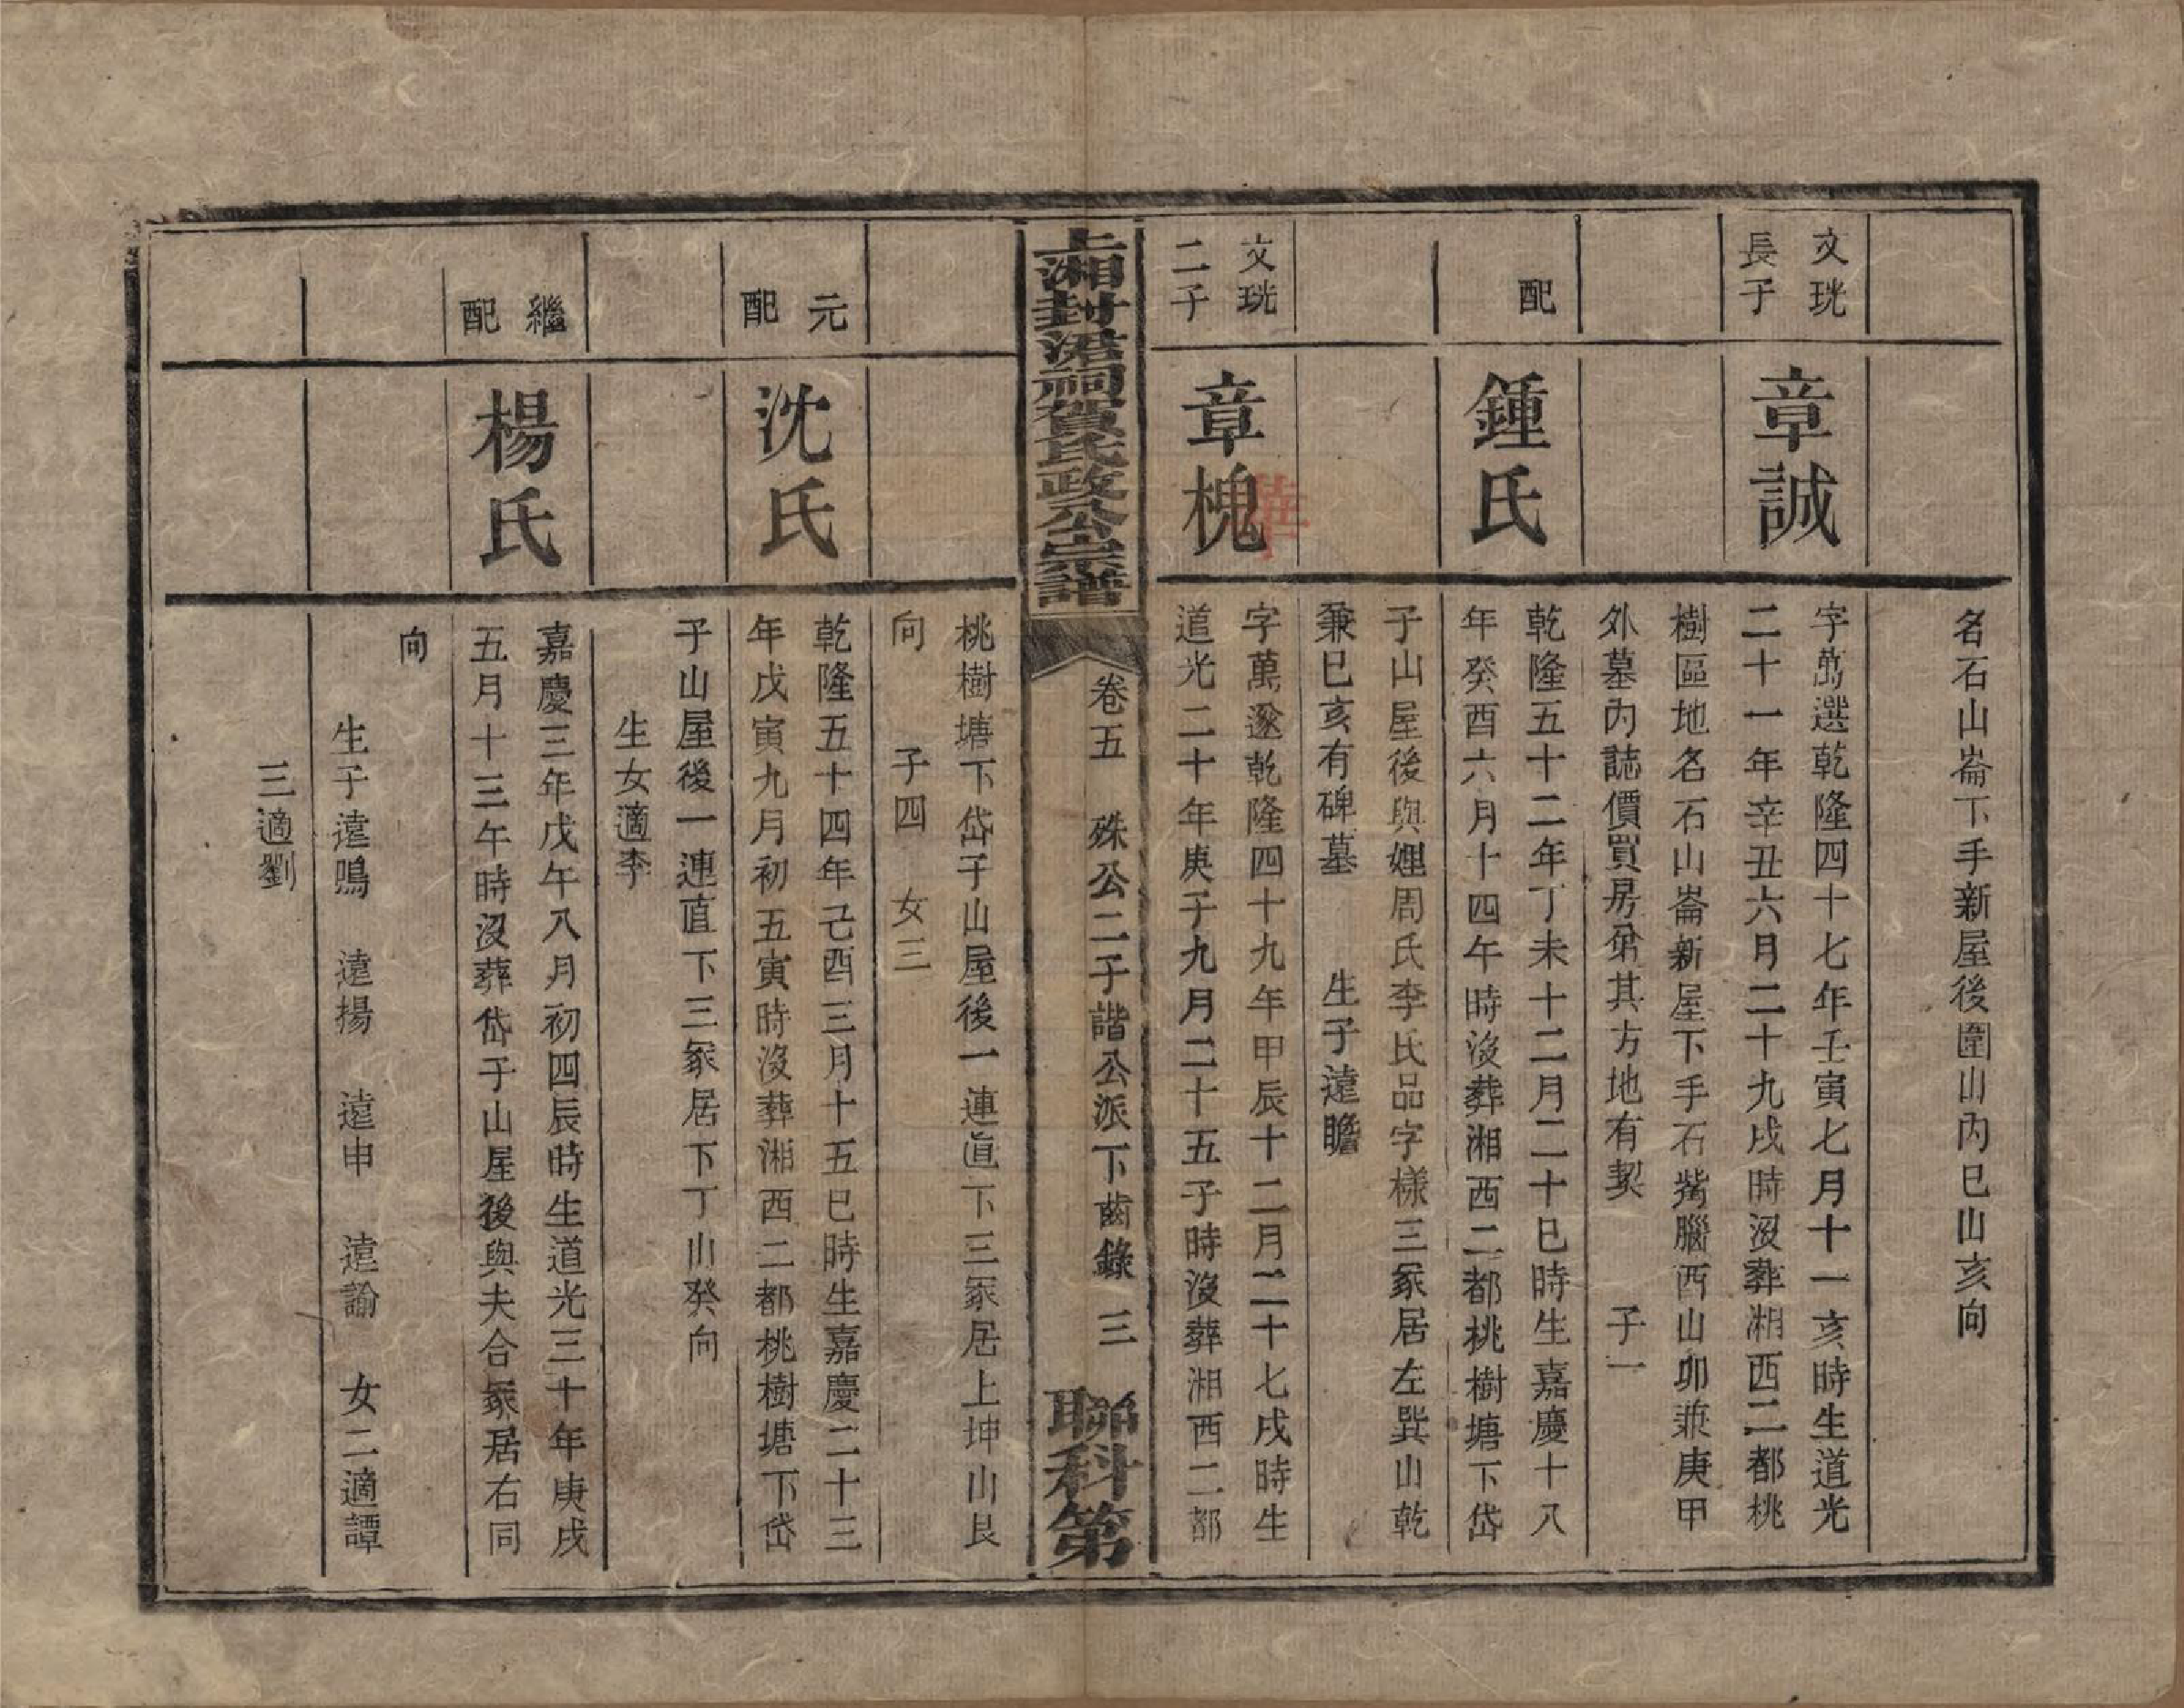 名石山崙下手新屋後圍山內巳山亥向
文珖
長子
章誠
字萬選乾隆四十七年壬寅七月十一亥時生道光
二十一年辛丑六月二十九戌時沒葬湘西二都桃
樹區地名石山崙新屋下手石觜腦酉山卯兼庚甲
外墓內誌價買房弟其方地有契 子一
配
鍾氏
乾隆五十二年丁未十二月二十巳時生嘉慶十八
年癸酉六月十四午時沒葬湘西二都桃樹塘下岱
子山屋後與娌周氏李氏品字樣三冢居左巽山乾
兼巳亥有碑墓 生子遠瞻
文珖
二子
章槐
字萬邃乾隆四十九年甲辰十二月二十七戌時生
道光二十年庚子九月二十五子時沒葬湘西二都
上湘封涒祠賀氏政公宗譜
卷五 硃公二子諧公派下齒錄 三
聯科第
桃樹塘下岱子山屋後一連直下三冢居上坤山艮
向 子四 女三
元
配
沈氏
乾隆五十四年己酉三月十五巳時生嘉慶二十三
年戊寅九月初五寅時沒葬湘西二都桃樹塘下岱
子山屋後一連直下三冢居下丁山癸向
生女適李
繼
配
楊氏
嘉慶三年戊午八月初四辰時生道光三十年庚戌
五月十三午時沒葬岱子山屋後與夫合冢居右同
向
生子遠鳴 遠揚 遠申 遠諭 女二適譚
三適劉
華